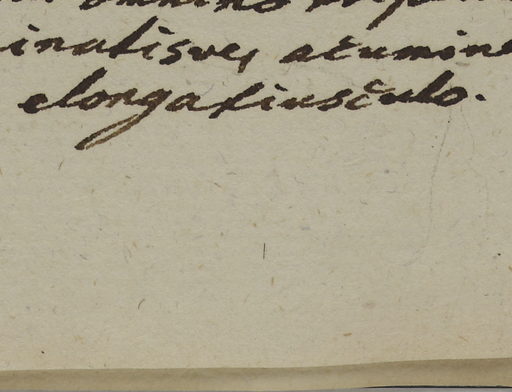 omnino
inatisve, acumine
elongatiusculo.